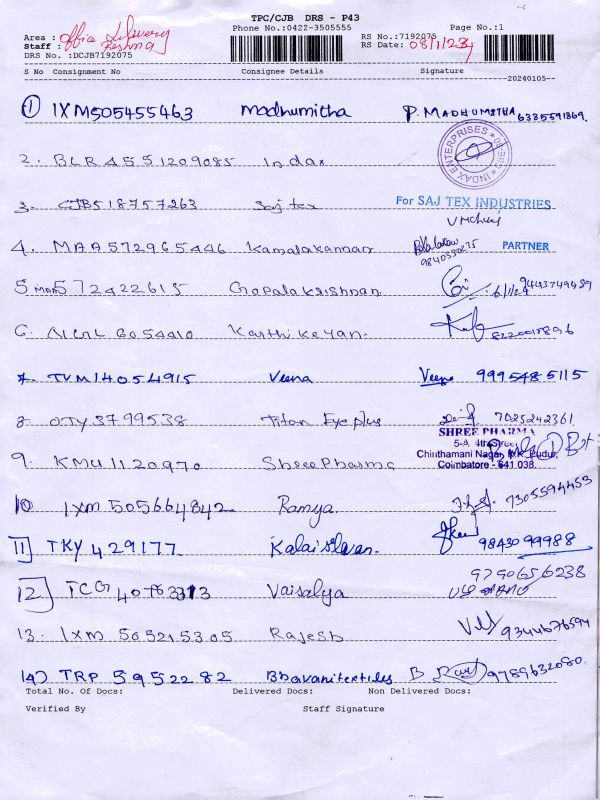 TPC/CJB DRS - P43
Area : Office Delivery Phone No.:0422-3505555 RS No.:7192075 Page No.:1
Staff : Reshma RS Date: 08/1/24
DRS No. :DCJB7192075
S No Consignment No Consignee Details Signature
20240105--
1 IXM505455463 Madhumitha P. MADHUMITHA 6385591869.
2. BLR4551209085 Indax INDAX ENTERPRISES
3. CJB518757263 Saj tex For SAJ TEX INDUSTRIES
4. MAA572965446 Kamalakannan 9840330875 PARTNER
5 MAA572422615 Gopalakrishnan 6/1/24 9443749489
6. 6054410 Karthikeyan. 8220018896
7. TVM14054915 Veena Veena 9995485115
8. OTY3799538 Titan Eyeplus 7025242361
SHREE PHARMA
5-A, 4th Street,
9. KMU1120970 Shree Pharma Chinthamani Nagar, K.K. Pudur,
Coimbatore - 641 038.
10 IXM 505664842 Ramya 7305594453
11 TKY 429177. Kalaiselvan. 9843099988
12 TCG 40763313 Vaisalya 9790656238
13. IXM 505215305 Rajesh 9344676594
14) TRP 5952282 Bhavanitextiles B 9789632080.
Total No. Of Docs: Delivered Docs: Non Delivered Docs:
Verified By Staff Signature